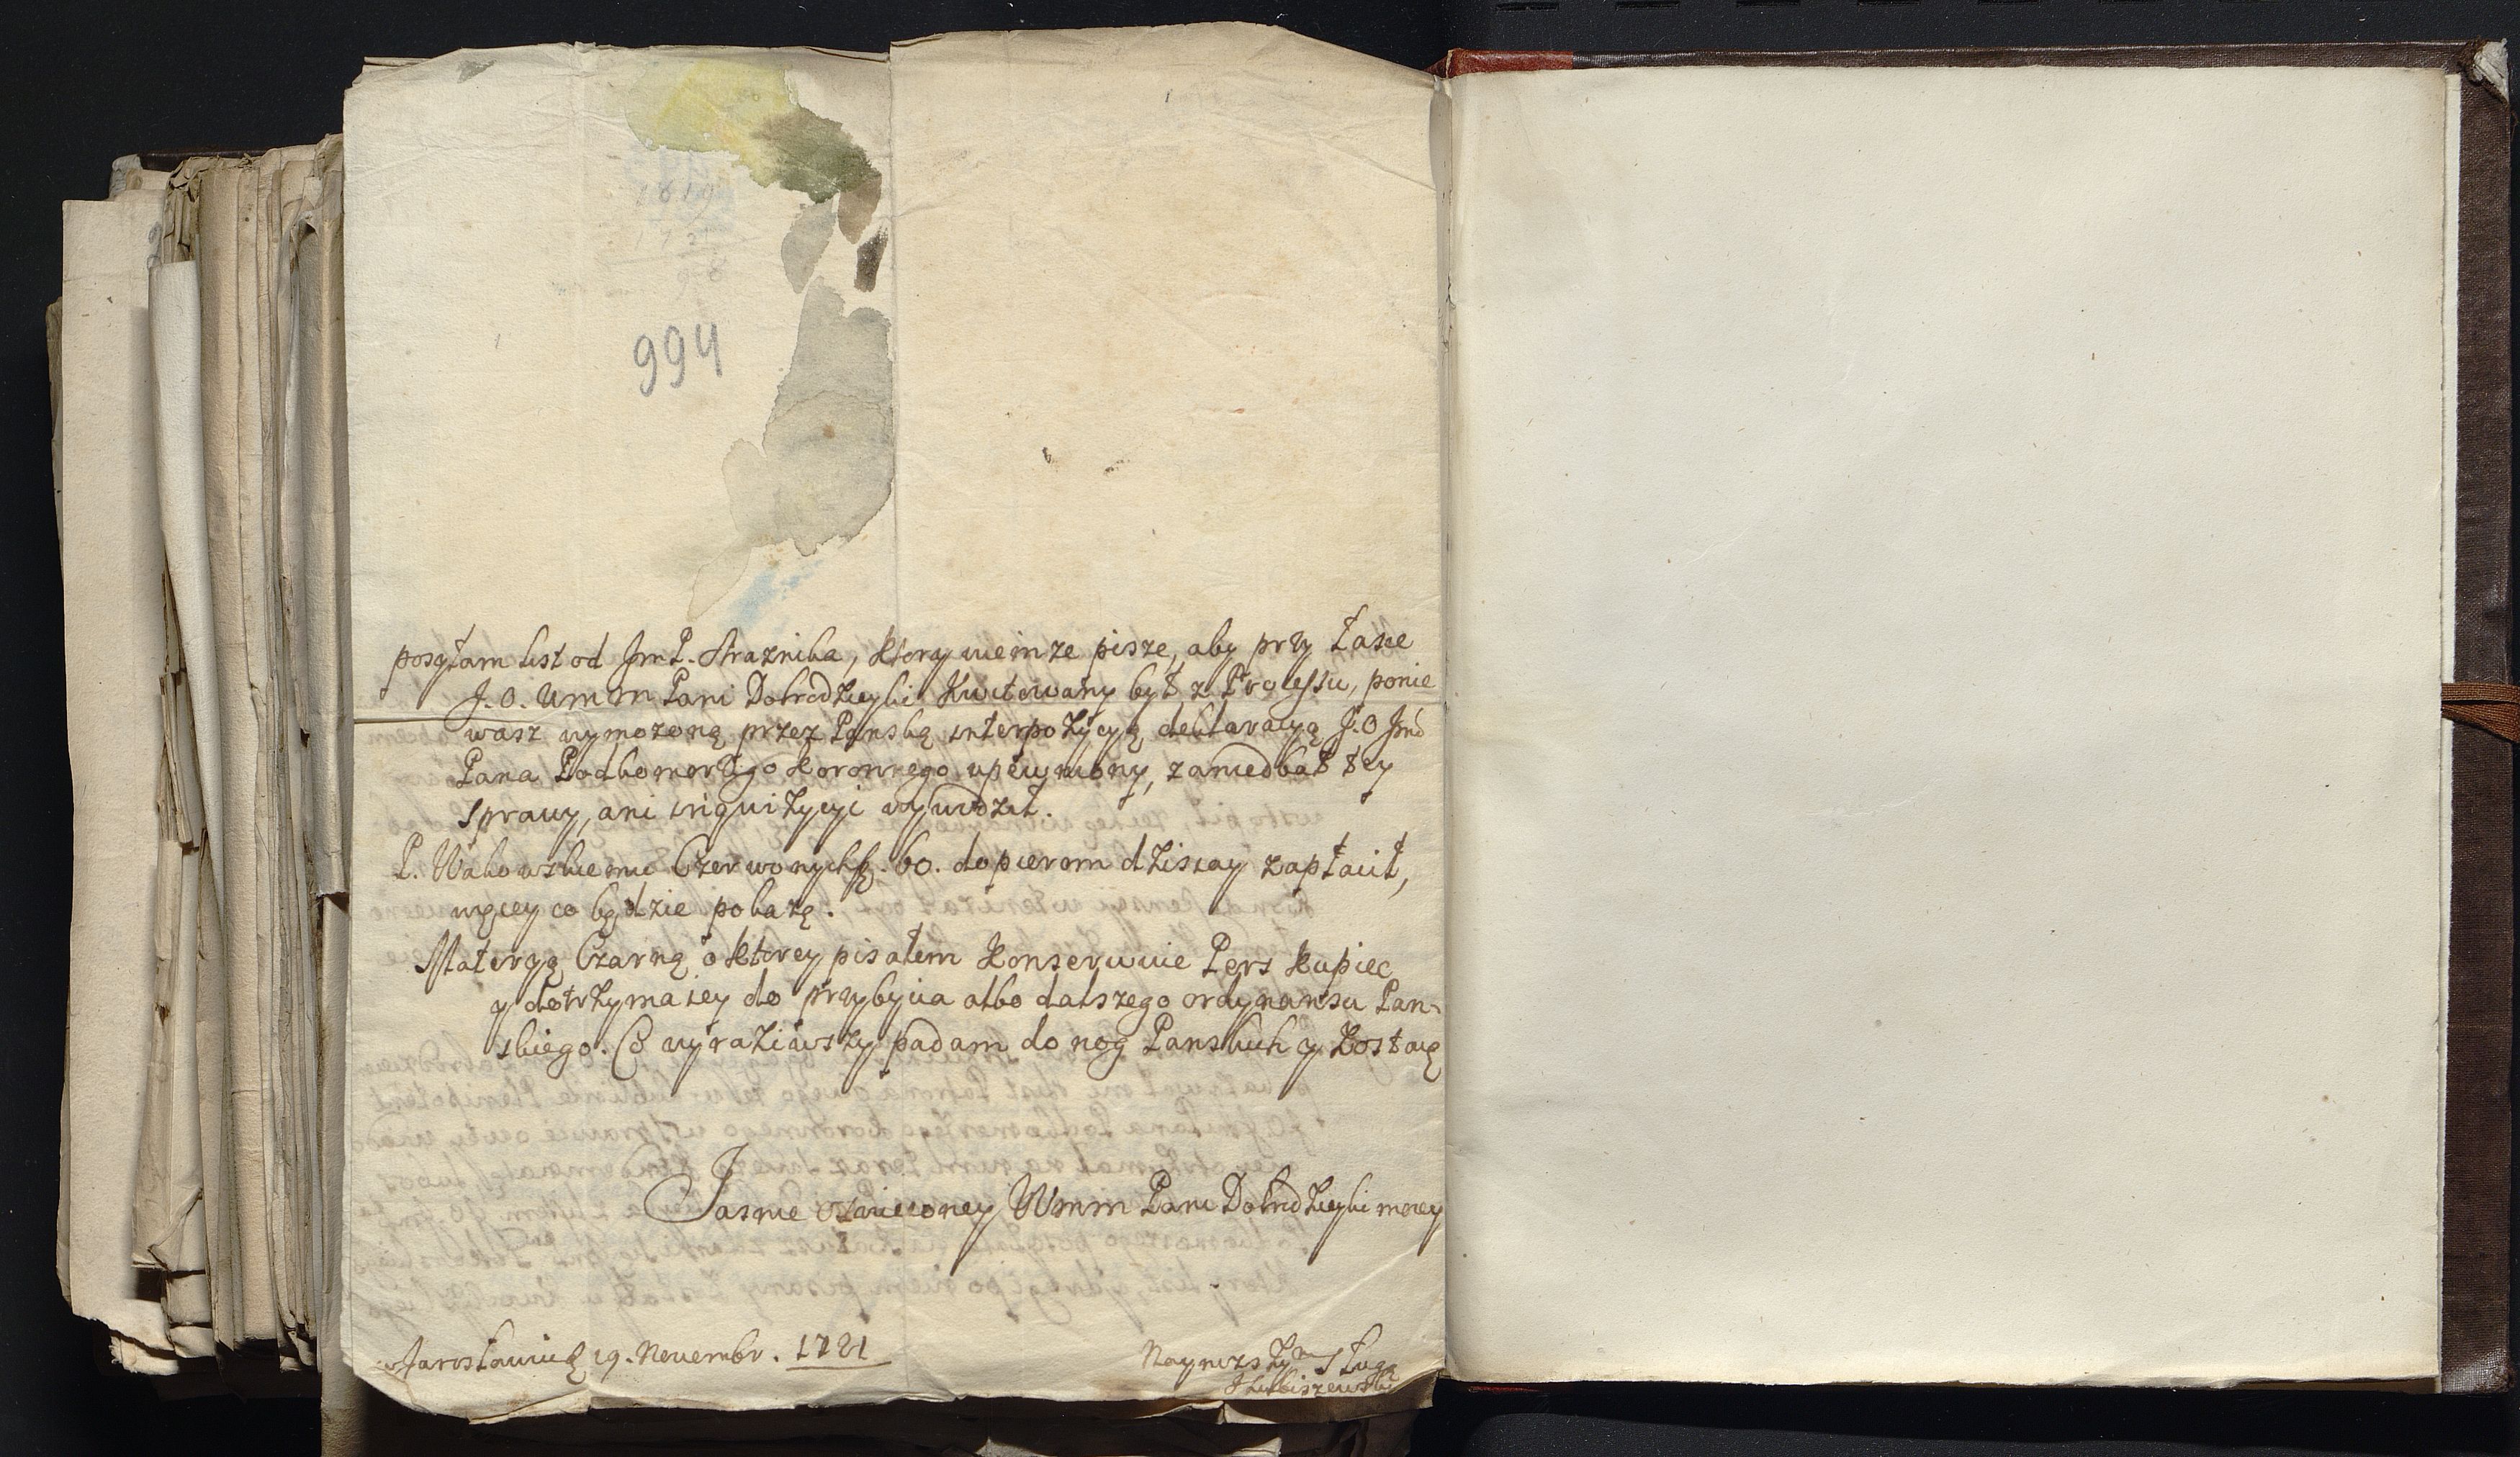 1819
1721
98
994
posyłam list od JmP. Straznika, ktory wiem ze pisze, aby przy Łasce
J. O. Wmm Pani Dobrodzieyki Kwitowany był z Processu, ponie
wasz wymozoną przez Panską interpozycyą deklaracyą J. O Jmć
Pana Podkomorzego Koronnego upewniony, zaniedbał tey
sprawy, ani inquizycyi wywodził.
P. Wakowskiemu Czerwonych . 60. dopierom dzisiay zapłacił,
więcey co będzie pokażę.
Materyą Czarną o ktorey pisałem Konserwuie Pers Kupiec
y dotrzyma iey do przybycia albo dalszego ordynansu Pan-
skiego. Co wyraziwszy padam do nog Panskich y Zostaię
Jasnie Oswieconey Wmm Pani Dobrodzieyki moiey
w Jarosławiu 19. Novembr. 1721
Naynizszym Sługą